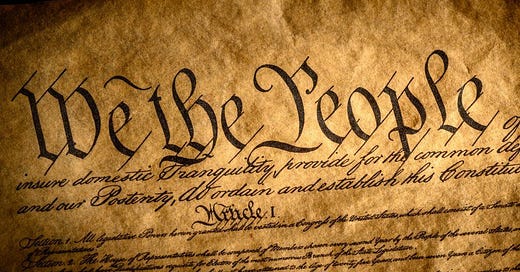 We the People of
insure domestic Tranquility, provide for the common
and our Posterity, do ordain and establish this Constitu
Article. I.
Section. 1. All legislative Powers herein granted shall be vested in a Congress of the United States, which shall consist of a Senate
Section. 2. The House of Representatives shall be composed of Members chosen every second Year by the People of the several States,